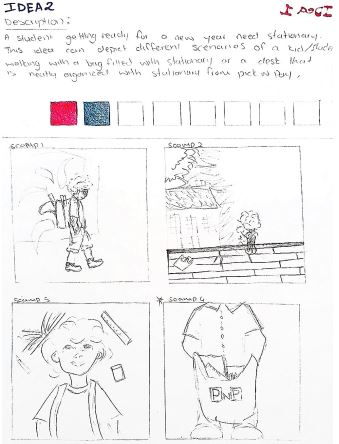 IDEA2
Description:
A student getting ready for a new year need stationary.
This idea can depict different scenarios of a kid/stude
walking with a bag filled with stationary or a desk that
is neatly organized with stationary from pick n pay.
scamp 1
scamp 2
scamp 3
* scamp 4
PnP